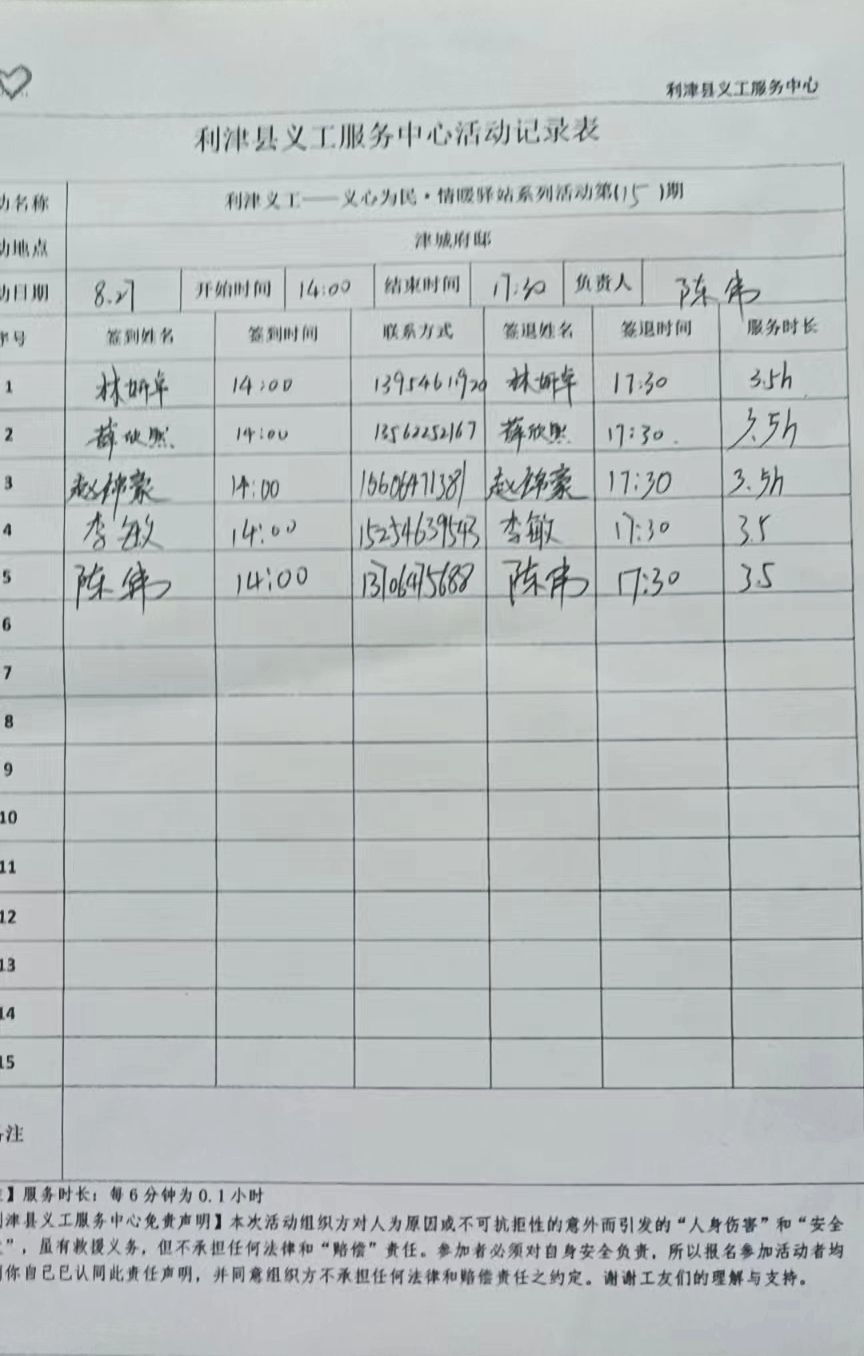 利津县义工服务中心
利津县义工服务中心活动记录表
动名称 利津义工——义心为民·情暖驿站系列活动第(15)期
动地点 津城府邸
动日期 8.27 开始时间 14:00 结束时间 17:30 负责人 陈伟
序号 签到姓名 签到时间 联系方式 签退姓名 签退时间 服务时长
1 林妍卓 14:00 13954611920 林妍卓 17:30 3.5h
2 薛欣熙 14:00 13562252167 薛欣熙 17:30. 3.5h
3 赵锦豪 14:00 15606471381 赵锦豪 17:30 3.5h
4 李敏 14:00 15254639543 李敏 17:30 3.5
5 陈伟 14:00 13706475688 陈伟 17:30 3.5
6
7
8
9
10
11
12
13
14
15
注
】服务时长：每6分钟为0.1小时
津县义工服务中心免责声明】本次活动组织方对人为原因或不可抗拒性的意外而引发的“人身伤害”和“安全
”，虽有救援义务，但不承担任何法律和“赔偿”责任。参加者必须对自身安全负责，所以报名参加活动者均
你自己已认同此责任声明，并同意组织方不承担任何法律和赔偿责任之约定。谢谢工友们的理解与支持。